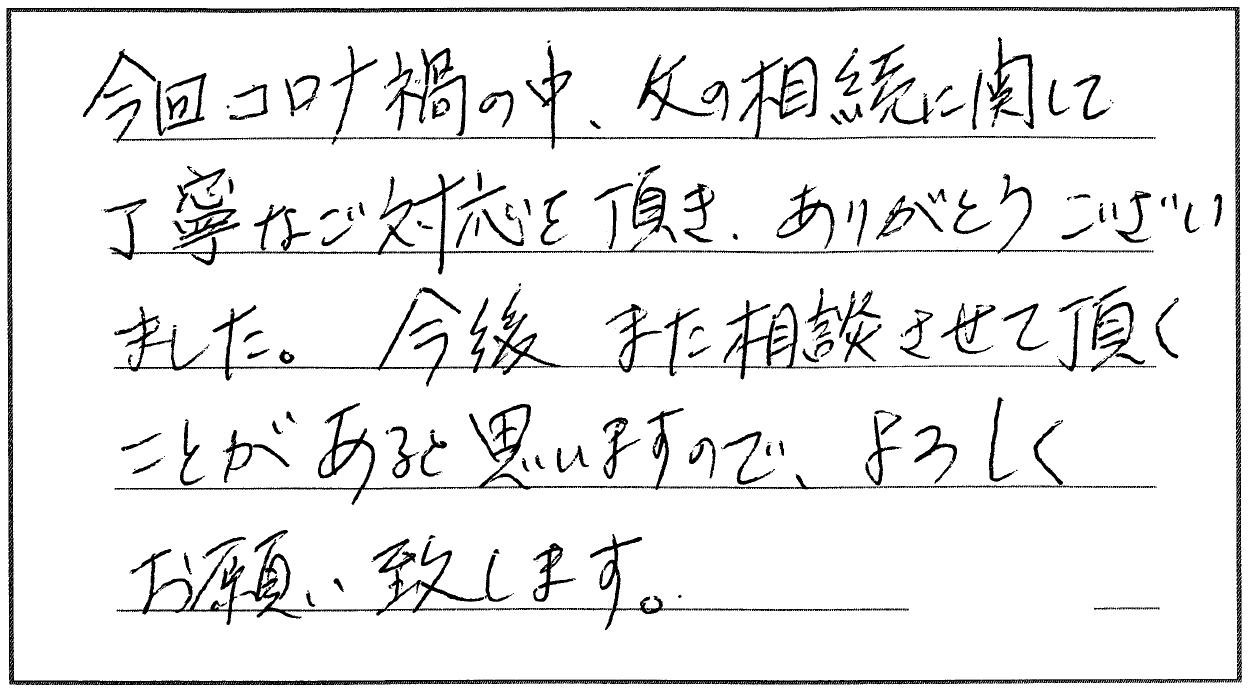 今回コロナ禍の中、父の相続に関して
丁寧なご対応を頂き、ありがとうござい
ました。今後また相談させて頂く
ことがあると思いますので、よろしく
お願い致します。